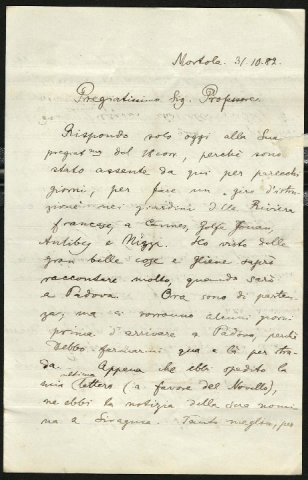 Mortola. 31.10.82.
Pregiatissimo Sig. Professore
Rispondo solo oggi alla Sua
pregiatma del corr, perchè sono
stato assente da qui per parecchi
giorni, per fare un giro d'istru-
zione nei giardini della Riviera
francese, a Cannes, Golfe Jouan,
Antibes e Nizza. Ho visto delle
gran belle cose e gliene saprò
raccontare molto, quando sarò
a Padova. Ora sono di parten-
za, ma ci vorranno alcuni giorni
prima d'arrivare a Padova, perchè
debbo fermarmi qua e là per stra-
da. Appena che ebbi spedito la
mia ultima lettera (a favore del Novello),
ne ebbi la notizia della sua nomi-
na a Siragusa. Tanto meglio, per